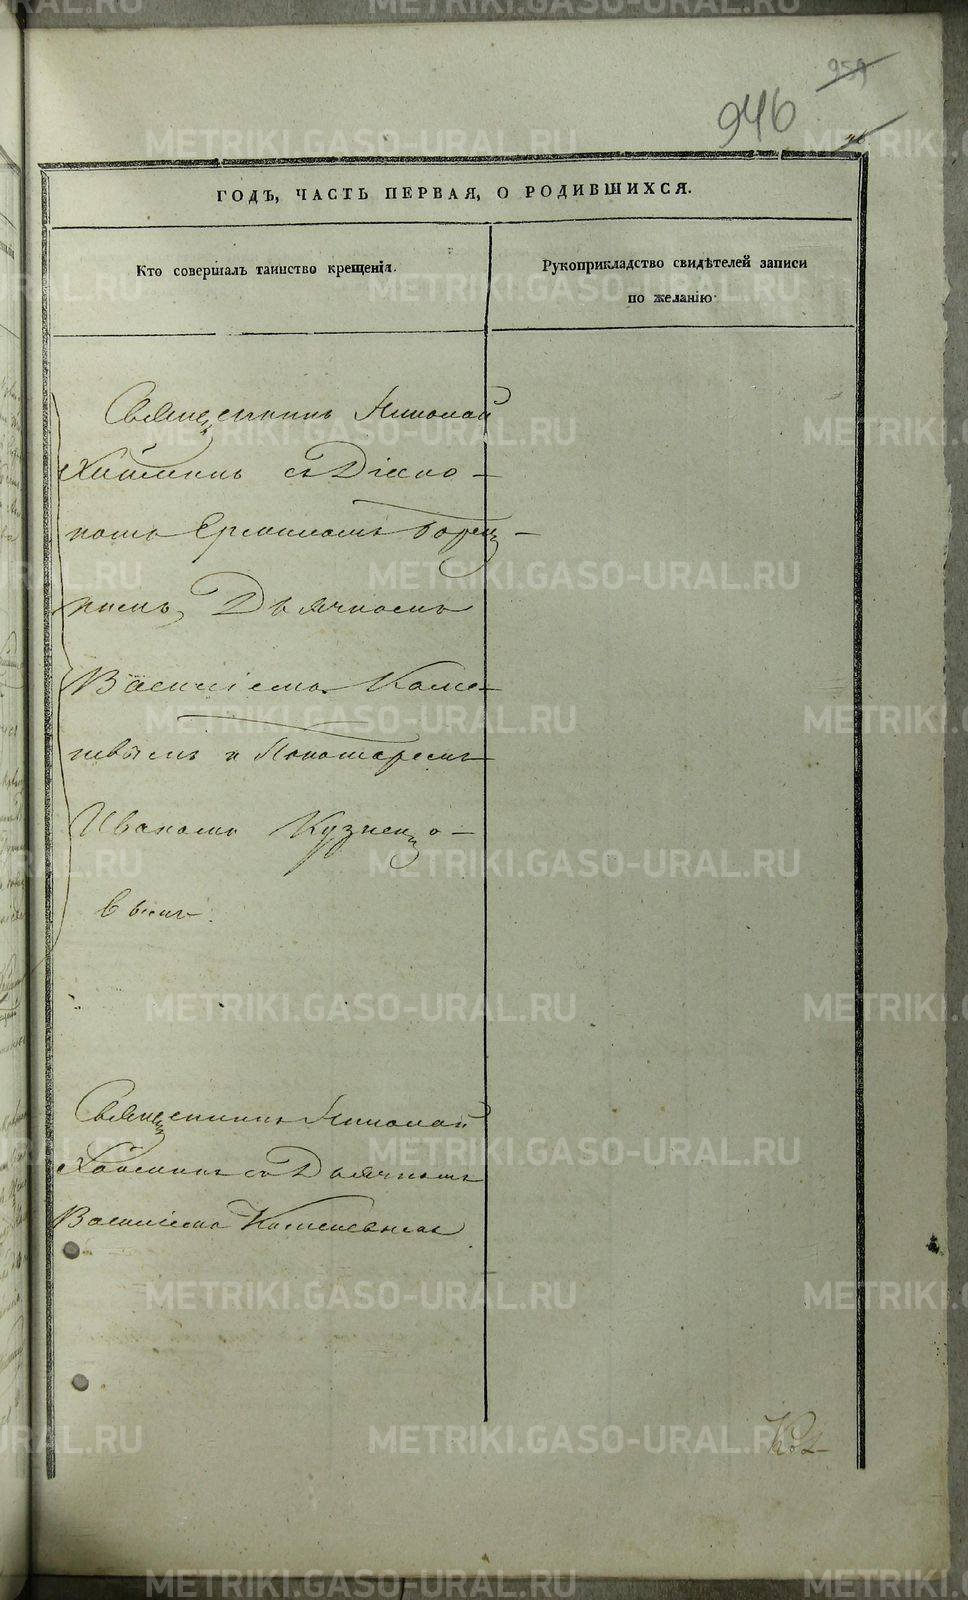 959
946
46
ГОДЪ, ЧАСТЬ ПЕРВАЯ, О РОДИВШИХСЯ.
Кто совершалъ таинство крещенія.
Рукоприкладство свидѣтелей записи
по желанію
Священникъ Николай
съ Діако-
номъ Ермиломъ
Дьячкомъ
Василіемъ Каме-
невымъ и Пономаремъ
Иваномъ Кузнецо-
вымъ.
Священникъ Николай
съ Дьячкомъ
Василіемъ Каменевымъ
METRIKI.GASO-URAL.RU